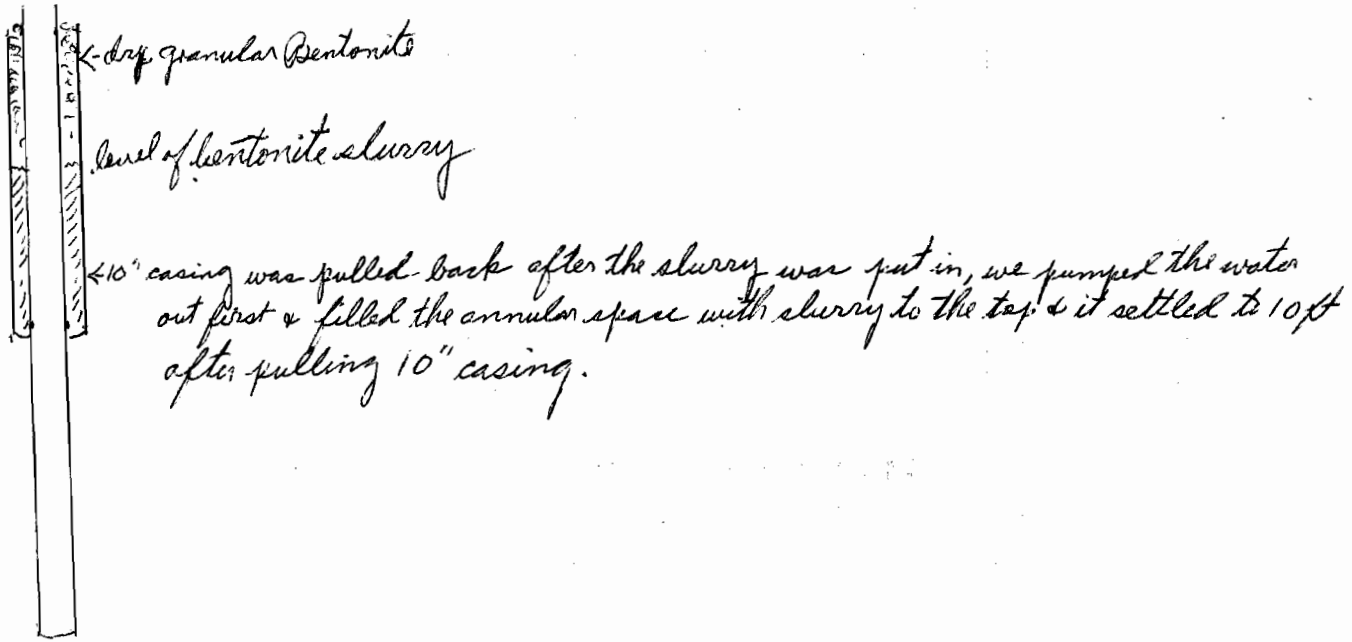 <-dry granular Bentonite
level of bentonite slurry
<10" casing was pulled back after the slurry was put in, we pumped the water
out first & filled the annular space with slurry to the top & it settled to 10 ft
after pulling 10" casing.